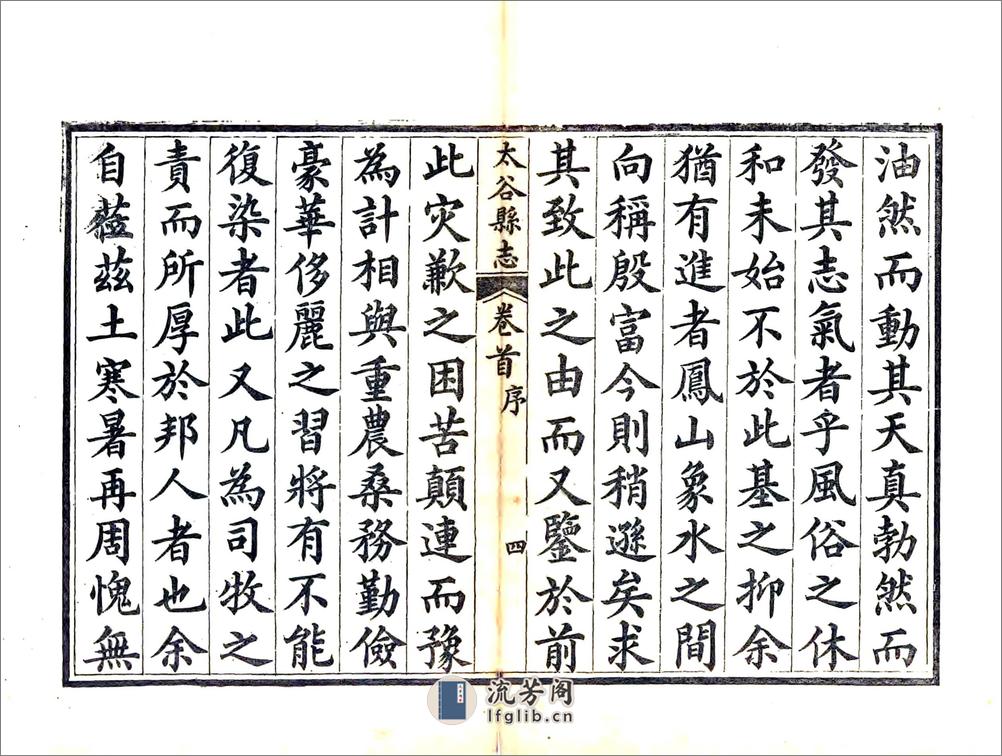 油然而動其天真勃然而
發其志氣者乎風俗之休
和未始不於此基之抑余
猶有進者鳳山象水之間
向稱殷富今則稍遜矣求
其致此之由而又鑒於前
太谷縣志 卷首 序 四
此灾歉之困苦顛連而豫
為計相與重農桑務勤儉
豪華侈麗之習將有不能
復染者此又凡為司牧之
責而所厚於邦人者也余
自蒞茲土寒暑再周愧無
流芳阁
lfglib.cn